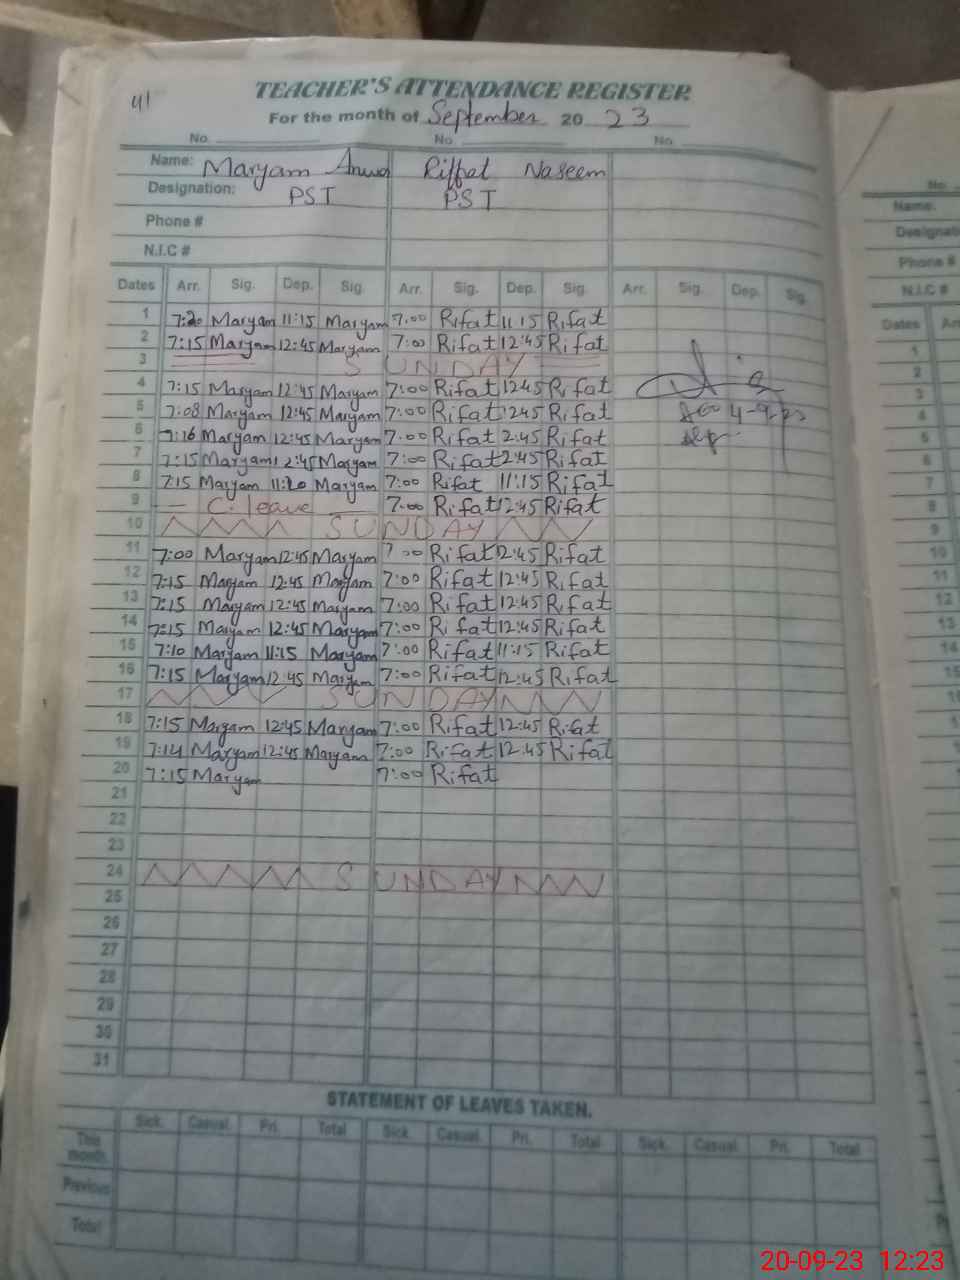 41
TEACHER'S ATTENDANCE REGISTER
For the month of September 20 23
No. No. No.
Name: Maryam Riffat Naseem
Designation: PST PST
Phone #
N.I.C #
Dates Arr. Sig. Dep. Sig. Arr. Sig. Dep. Sig. Arr. Sig. Dep. Sig.
1 7:20 Maryam 11:15 Maryam 7:00 Rifat 11:15 Rifat
2 7:15 Maryam 12:45 Maryam 7:00 Rifat 12:45 Rifat
3 SUNDAY
4 7:15 Maryam 12:45 Maryam 7:00 Rifat 12:45 Rifat
5 7:08 Maryam 12:45 Maryam 7:00 Rifat 12:45 Rifat
6 7:16 Maryam 12:45 Maryam 7:00 Rifat 2:45 Rifat
7 7:15 Maryam 12:45 Maryam 7:00 Rifat 2:45 Rifat
8 7:15 Maryam 11:20 Maryam 7:00 Rifat 11:15 Rifat
9 C. leave 7:00 Rifat 12:45 Rifat
10 SUNDAY
11 7:00 Maryam 12:45 Maryam 7:00 Rifat 12:45 Rifat
12 7:15 Maryam 12:45 Maryam 7:00 Rifat 12:45 Rifat
13 7:15 Maryam 12:45 Maryam 7:00 Rifat 12:45 Rifat
14 7:15 Maryam 12:45 Maryam 7:00 Rifat 12:45 Rifat
15 7:10 Maryam 11:15 Maryam 7:00 Rifat 11:15 Rifat
16 7:15 Maryam 12:45 Maryam 7:00 Rifat 12:45 Rifat
17 SUNDAY
18 7:15 Maryam 12:45 Maryam 7:00 Rifat 12:45 Rifat
19 7:14 Maryam 12:45 Maryam 7:00 Rifat 12:45 Rifat
20 7:15 Maryam 7:00 Rifat
21
22
23
24 SUNDAY
25
26
27
28
29
30
31
STATEMENT OF LEAVES TAKEN.
Sick. Casual. Pri. Total Sick. Casual. Pri. Total Sick. Casual. Pri. Total
This month.
Previous
Total
No.
Name:
Designati
Phone #
N.I.C #
Dates
1
2
3
4
5
6
7
8
9
10
11
12
13
14
15
20-09-23 12:23